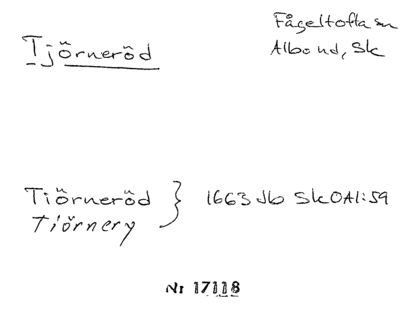 Tjörneröd
Fågeltofta sn
Albo hd, Sk
Tiörneröd } 1663 Jb Sk OAI:59
Tiörnery
Nr 17118